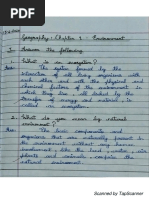 Geography: Chapter 1 - Environment
I. Answer the following
1. What is an ecosystem?
Ans: The system formed by the
interaction of all living organisms with
each other and with the physical and
chemical factors of the environment in
which they live, all linked by the
transfer of energy and material, is
called ecosystem.
2. What do you mean by natural
environment?
Ans: The basic components and
organisms
the
land
plants and animals comprise the
natural environment.
Scanned by TapScanner